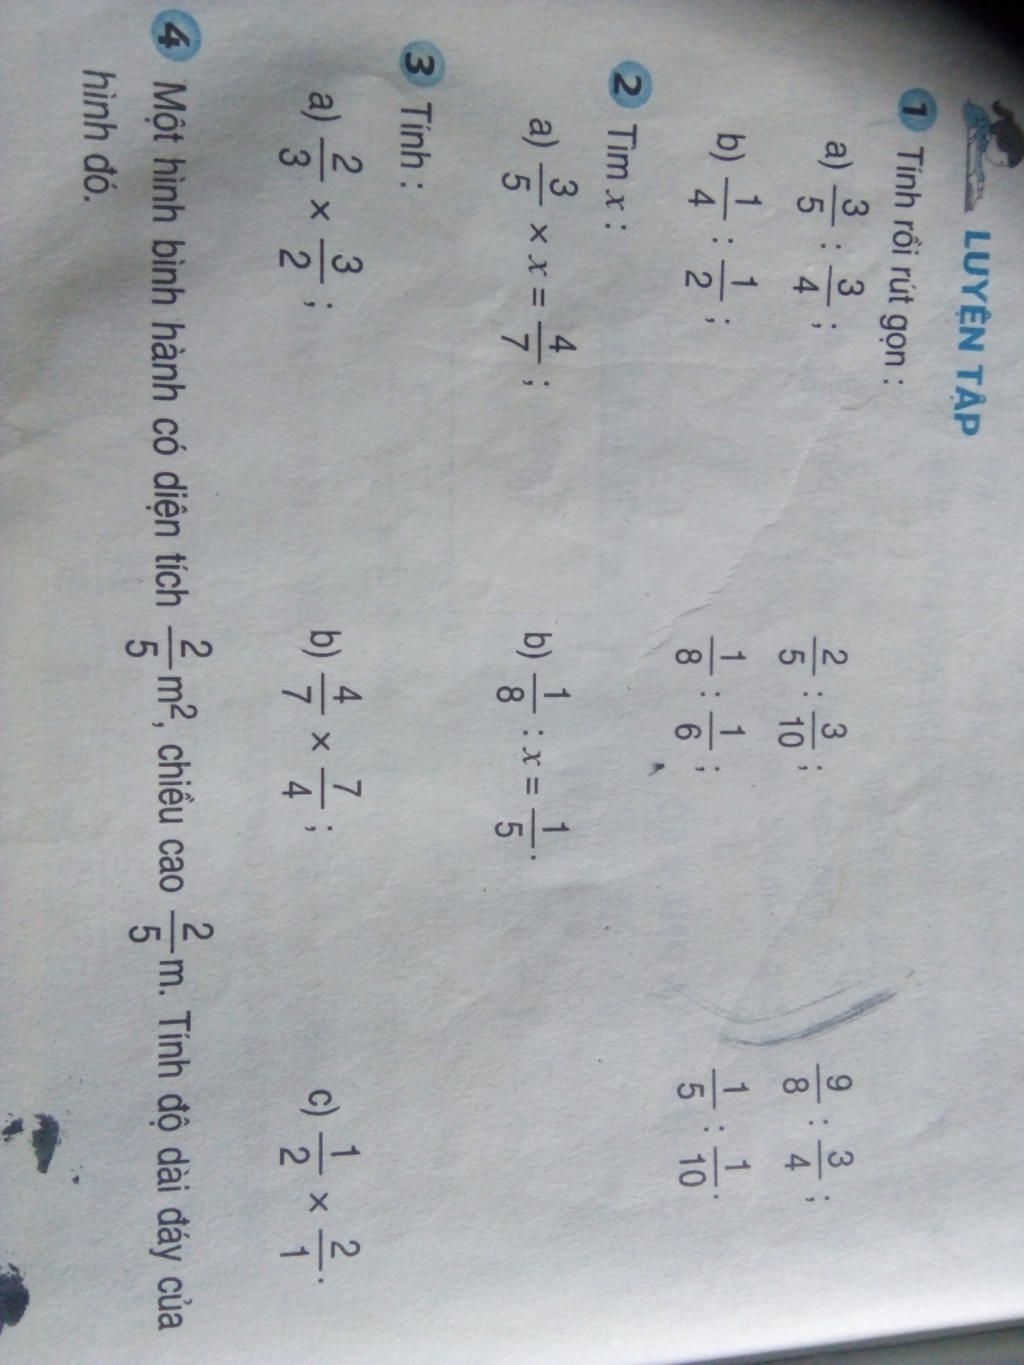 LUYỆN TẬP
1 Tính rồi rút gọn :
a) 3/5 : 3/4 ; 2/5 : 3/10 ; 9/8 : 3/4 ;
b) 1/4 : 1/2 ; 1/8 : 1/6 ; 1/5 : 1/10 .
2 Tìm x :
a) 3/5 × x = 4/7 ; b) 1/8 : x = 1/5 .
3 Tính :
a) 2/3 × 3/2 ; b) 4/7 × 7/4 ; c) 1/2 × 2/1 .
4 Một hình bình hành có diện tích 2/5 m², chiều cao 2/5 m. Tính độ dài đáy của
hình đó.